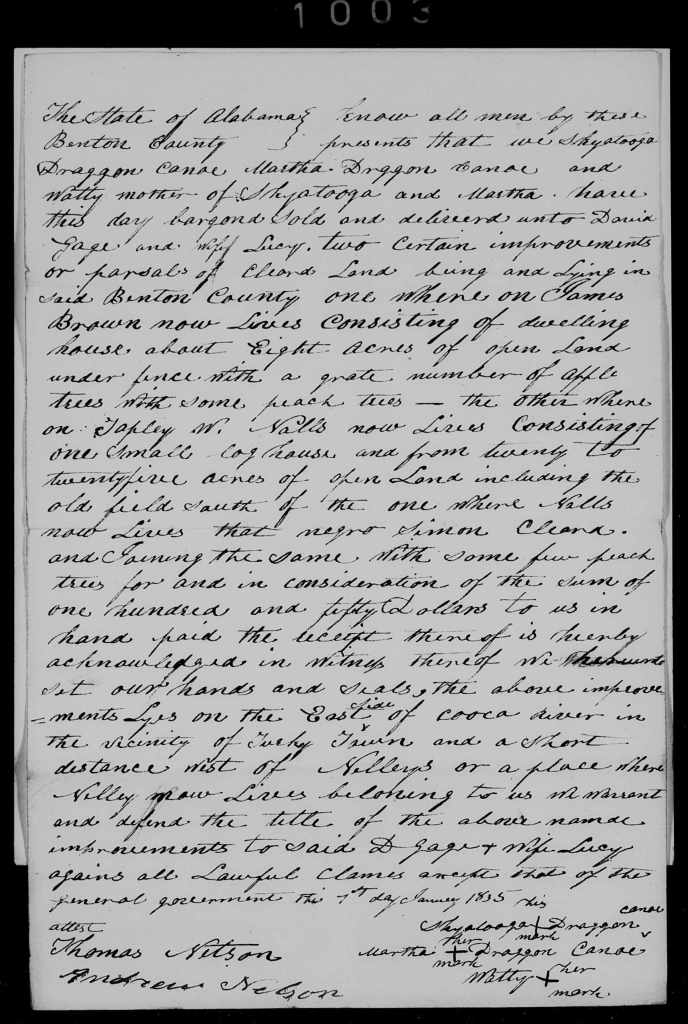 1003
The State of Alabama } Know all men by these
Benton County } presents that we Shyatooga
Draggon Canoe Martha Drggon Canoe and
Watty mother of Shyatooga and Martha have
this day bargond Sold and deliverd unto David
Gage and wife Lucy. two Certain improvements
or parsals of Cleard Land being and Lying in
said Benton County one where on James
Brown now Lives Consisting of dwelling
house about Eight Acres of open Land
under fence with a grate number of apple
trees with some peach trees — the other where
on Tapley W. Nalls now Lives Consisting of
one Small log house and from twenty to
twentyfive acres of open Land including the
old field south of the one where Nalls
now Lives that negro Simon Cleard.
and Joining the same with some few peach
trees for and in consideration of the sum of
one hundred and fifty Dollars to us in
hand paid the receipt thereof is hereby
acknowledged in witness thereof we hereunto
set our hands and seals, the above improve
=ments Lyes on the East side of Cooca River in
the vicinity of Turky Town and a short
distance west of Nelleys or a place where
Nelley now Lives beloning to us we warrant
and defend the title of the above namde
improvements to said D Gage & wife Lucy
agains all Lawful Clames except that of the
general goverment this 1st day Janury 1835
attest
Thomas Nelson
Andrew Nelson
Shyatooga his + mark Draggon canoe
Martha her + mark Draggon Canoe
Watty + her mark